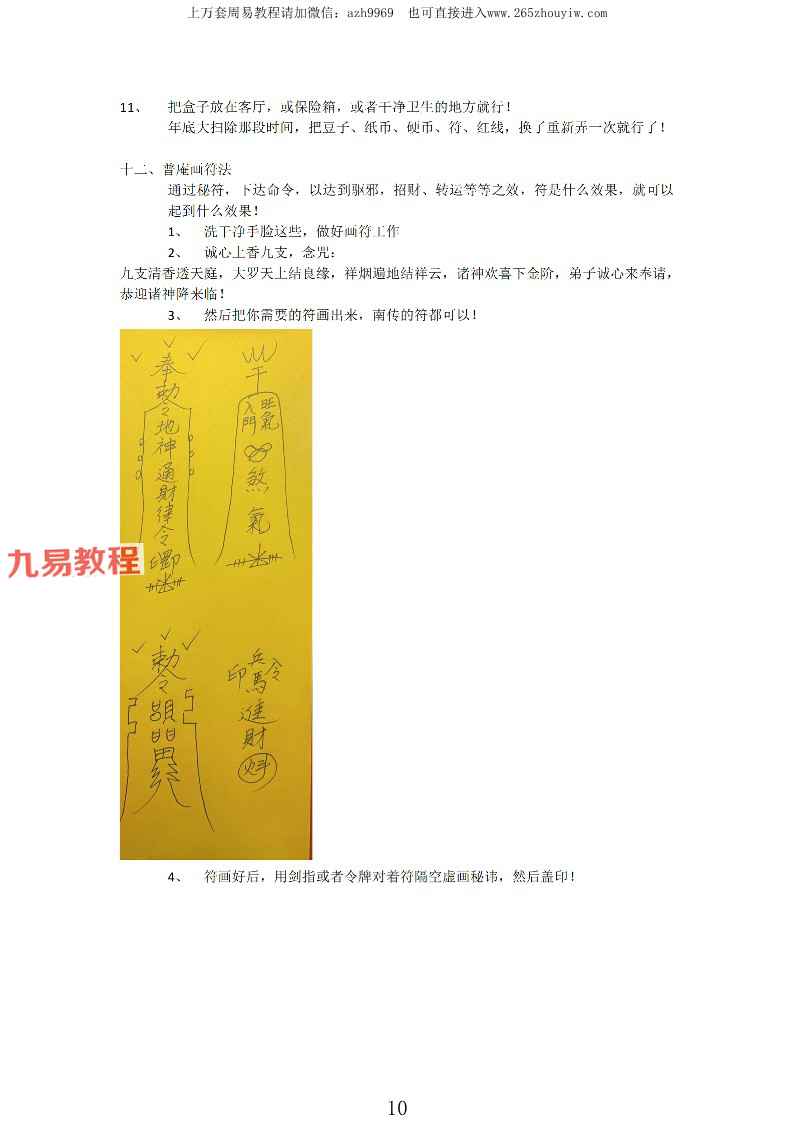 上万套周易教程请加微信：azh9969　也可直接进入www.265zhouyiw.com
11、 把盒子放在客厅，或保险箱，或者干净卫生的地方就行！
年底大扫除那段时间，把豆子、纸币、硬币、符、红线，换了重新弄一次就行了！
十二、普庵画符法
通过秘符，下达命令，以达到驱邪，招财、转运等等之效，符是什么效果，就可以
起到什么效果！
1、 洗干净手脸这些，做好画符工作
2、 诚心上香九支，念咒：
九支清香透天庭，大罗天上结良缘，祥烟遍地结祥云，诸神欢喜下金阶，弟子诚心来奉请，
恭迎诸神降来临！
3、 然后把你需要的符画出来，南传的符都可以！
奉勅令地神通財律令
入門
旺氣
煞氣
九易教程
勅令
兵馬進財
印
令
4、 符画好后，用剑指或者令牌对着符隔空虚画秘讳，然后盖印！
10